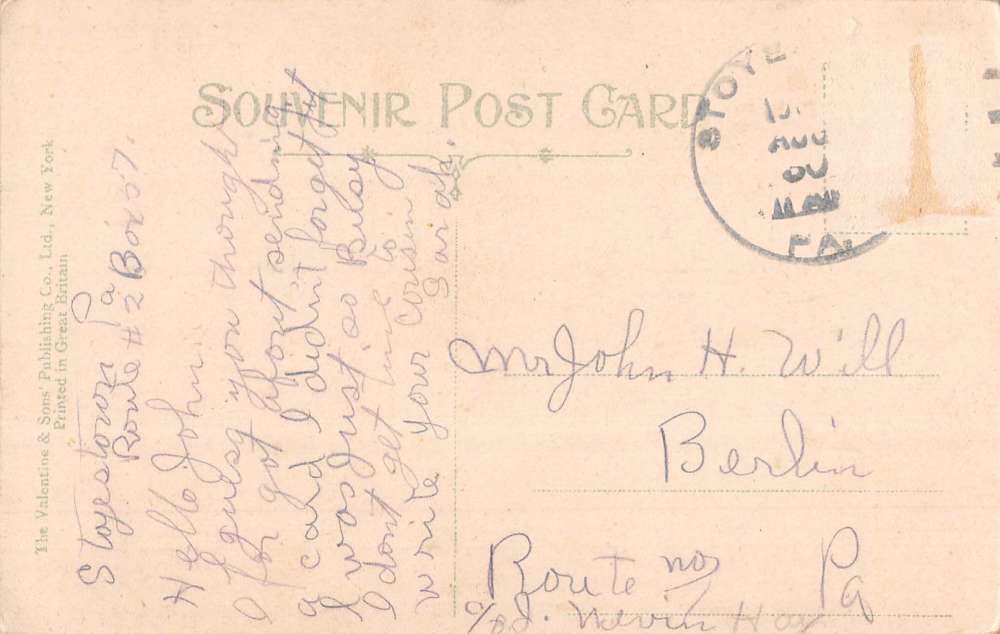 SOUVENIR POST CARD
The Valentine & Sons' Publishing Co., Ltd., New York
Printed in Great Britain
STOYE
DEC
PA.
Stoyestown Pa
Route #2 Box 57.
Hello John.
I guess you thought
I for got about sending
a card I didn't forget yet
I was just so Busy
I dont get time to
write your Cousin
Sarah.
Mr John H. Will
Berlin
Route no 1 Pa